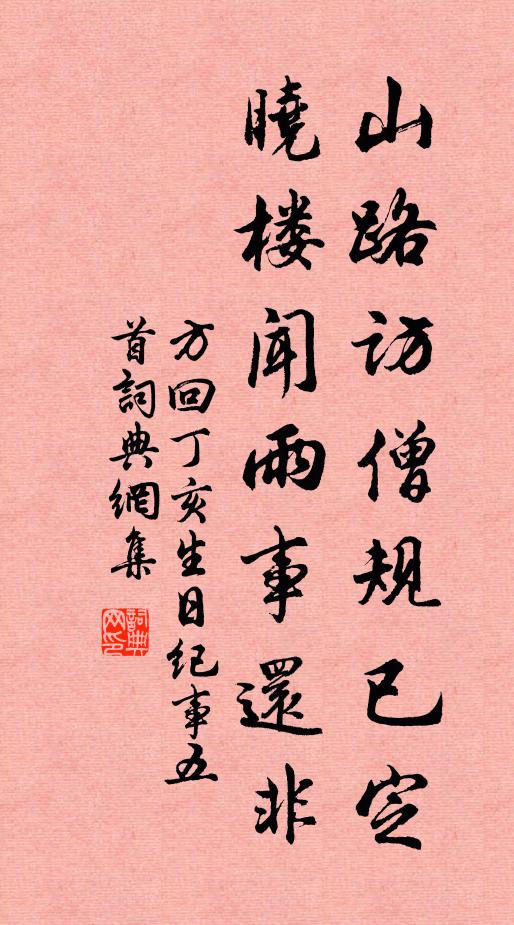 山路访僧规已定
曉楼闻雨事還非
方回丁亥生日纪事五
首詞典網集
詞典
网印